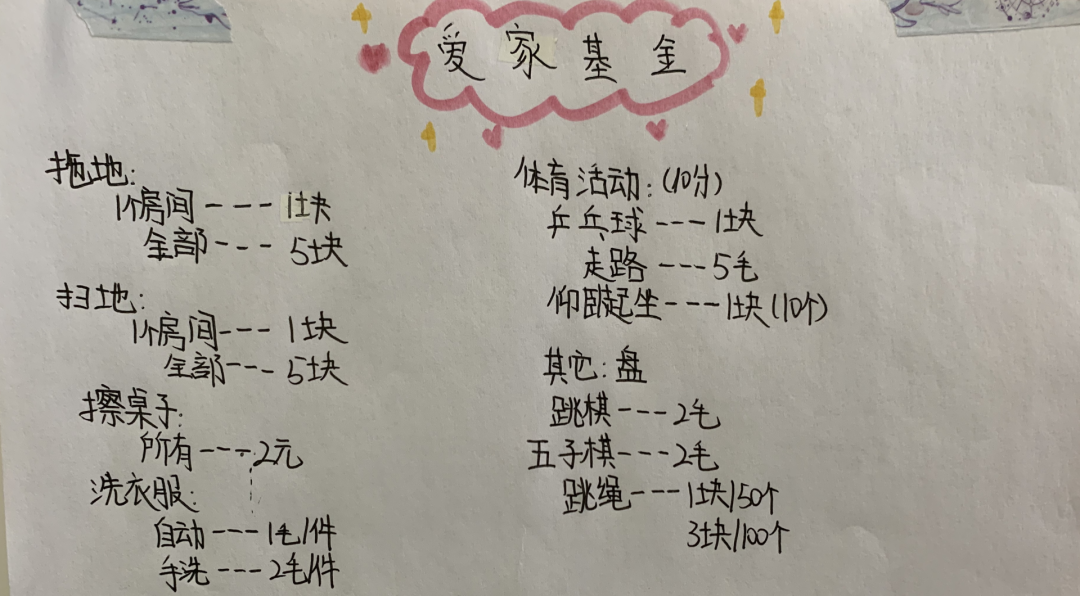 爱家基金
拖地:
1个房间----1块
全部---5块
扫地:
1个房间---1块
全部---5块
擦桌子:
所有---2元
洗衣服:
自动---1毛/件
手洗---2毛/件
体育活动:(10分)
乒乓球---1块
走路---5毛
仰卧起坐---1块(10个)
其它:盘
跳棋---2毛
五子棋---2毛
跳绳---1块/50个
3块/100个